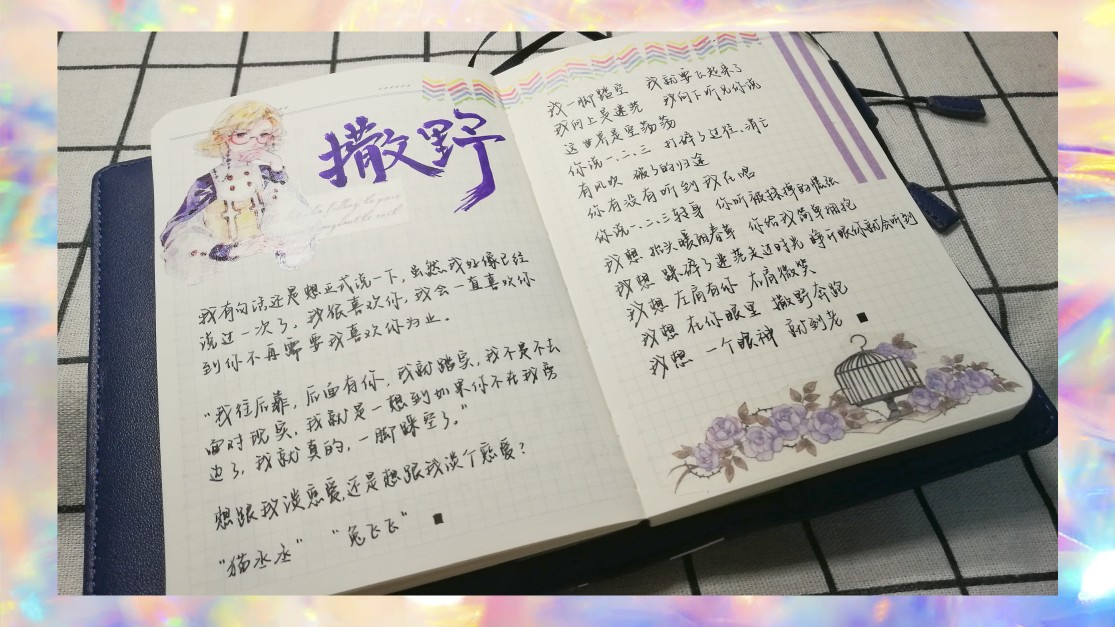 撒野
我有句话还是想正式说一下，虽然我好像已经
说过一次了，我很喜欢你，我会一直喜欢你
到你不再需要我喜欢你为止。
“我往后靠，后面有你，我就踏实，我不是不去
面对现实，我就是一想到如果你不在我旁
边了，我就真的，一脚踩空了。”
想跟我谈恋爱，还是想跟我谈个恋爱？
“猫丞丞” “兔飞飞”
我一脚踏空 我就要飞起来了
我向上是迷茫 我向下听见你说
这世界是空荡荡
你说一、二、三 打碎了过往、消亡
有风吹 破了的归途
你有没有听到我在唱
你说一、二、三转身 你听被抹掉的慌张
我想 抬头暖阳春草 你给我简单拥抱
我想 踩碎了迷茫走过时光 睁开眼你就会听到
我想 左肩有你 右肩微笑
我想 在你眼里 撒野奔跑
我想 一个眼神 就到老